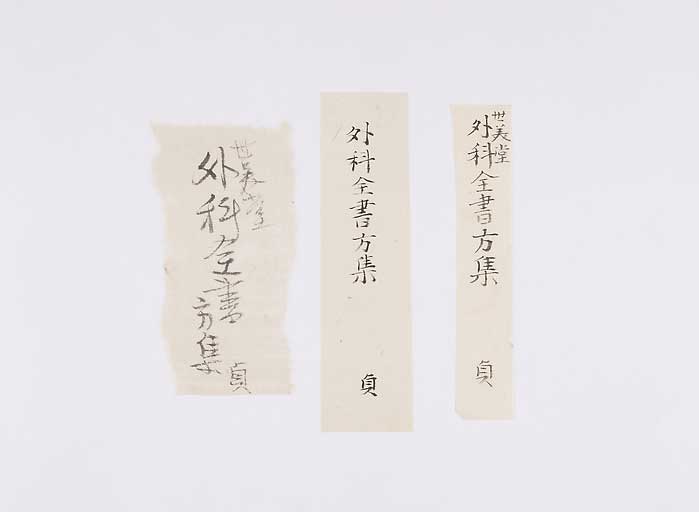 世美堂
外科全書方集
貞
外科全書方集
貞
世美堂
外科全書方集
貞